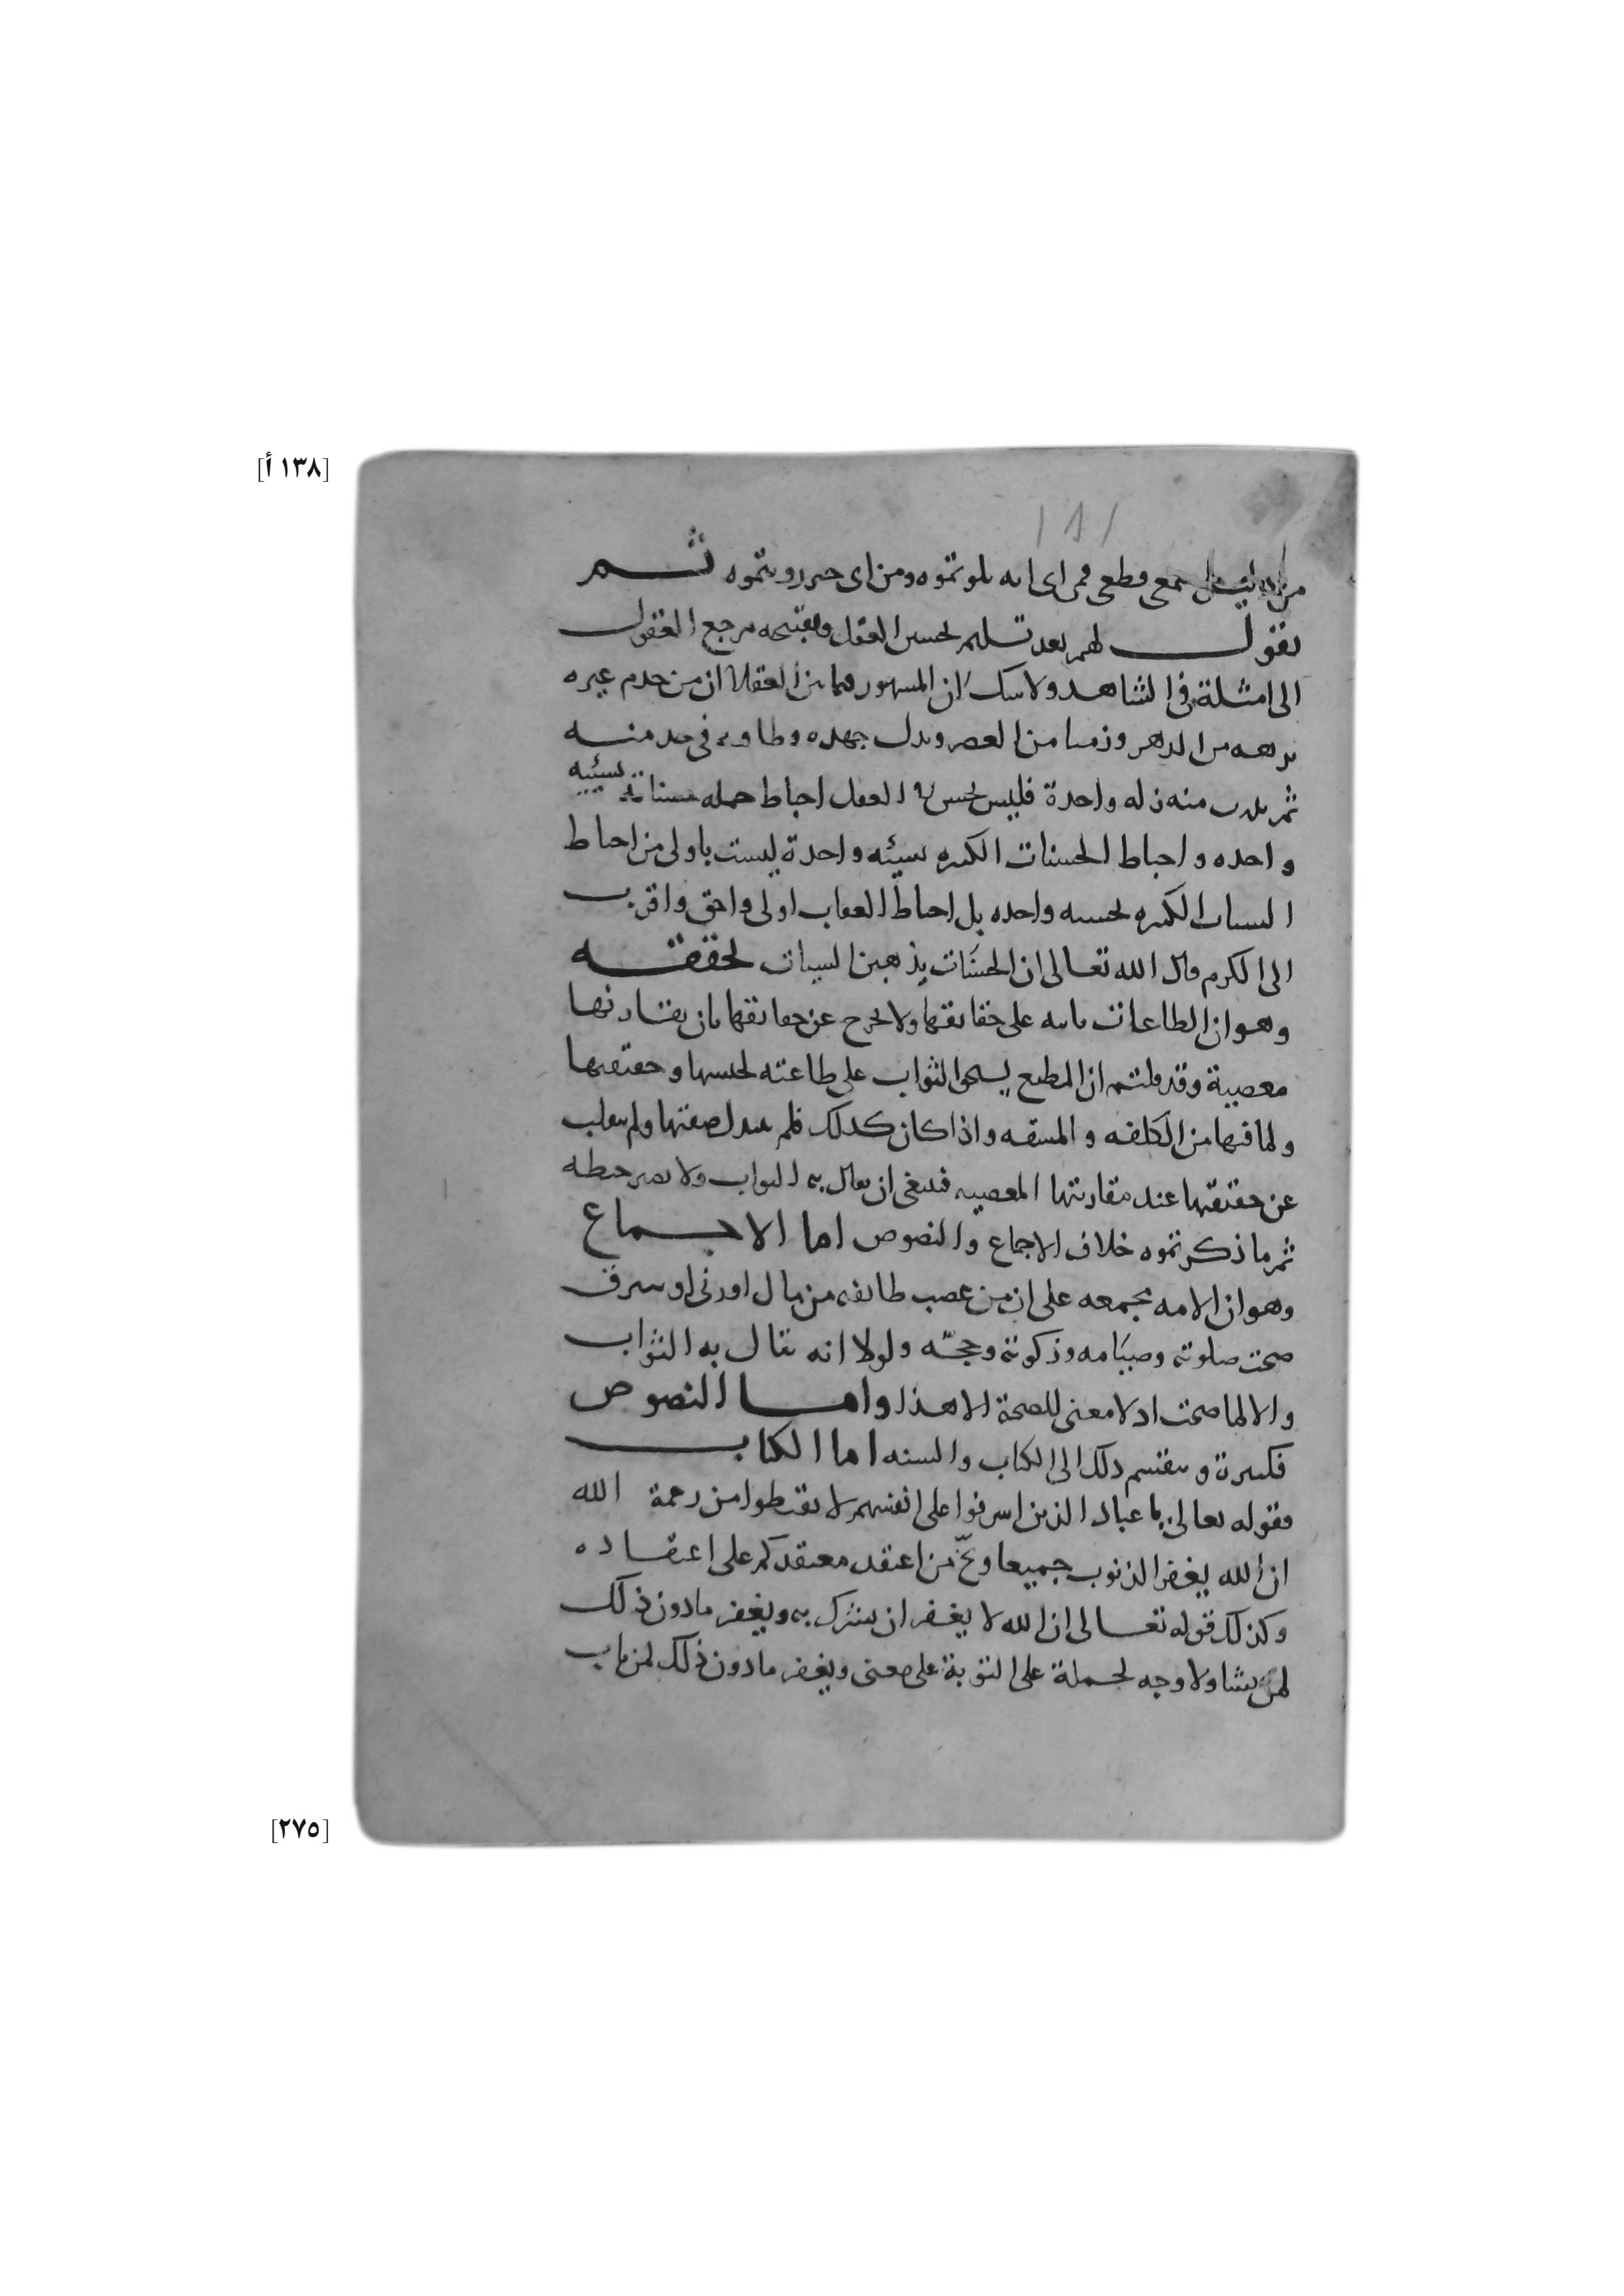 [١٣٨ أ]
١٨١
من دليل سمعي وطعى فمن اى ايه تلوتموه ومن اى خبر رويتموه ثم
نقول لهم بعد تسليم تحسين العقل وتقبيحه مرجع العقول
الى امثلة فى الشاهد ولا شك ان المشهور فيما بين العقلا ان من خدم غيره
برهه من الدهر وزمنا من العصر وبدل جهده وطاقته فى خدمته
ثم بدرت منه زله واحدة فليس يحسن فى العقل احباط جمله حسناته بسيئه
واحده واحباط الحسنات الكثيره بسيئه واحدة ليست باولى من احباط
السيات الكثيره بحسنه واحده بل احباط العقاب اولى واحق واقرب
الى الكرم قال الله تعالى ان الحسنات يذهبن السيات تحققه
وهو ان الطاعات باقيه على حقائقها ولا تخرج عن حقائقها بان تقارنها
معصية وقد قلتم ان المطيع يستحق الثواب على طاعته لحسنها وحقيقتها
ولما فيها من الكلفه والمشقه واذا كان كذلك فلم تتبدل صفتها ولم تنقلب
عن حقيقتها عند مقارنتها المعصيه فينبغى ان ينال به الثواب ولا تصير حبطه
ثم ما ذكرتموه خلاف الاجماع والنصوص اما الاجماع
وهو ان الامه مجمعه على ان من غصب طائفه من مال او زنى او سرق
صحت صلوته وصيامه وزكوته وحجه ولولا انه ينال به الثواب
والا لما صحت اد لا معنى للصحة الا هذا واما النصوص
فكثيرة وينقسم ذلك الى الكتاب والسنه اما الكتاب
فقوله تعالى يا عباد الذين اسرفوا على انفسهم لا تقنطوا من رحمة الله
ان الله يغفر الذنوب جميعا وبخ من اعتقد معتقدكم على اعتقاده
وكذلك قوله تعالى ان الله لا يغفر ان يشرك به ويغفر ما دون ذلك
لمن يشا ولا وجه لحمله على التوبة على معنى ويغفر ما دون ذلك لمن تاب
[٢٧٥]